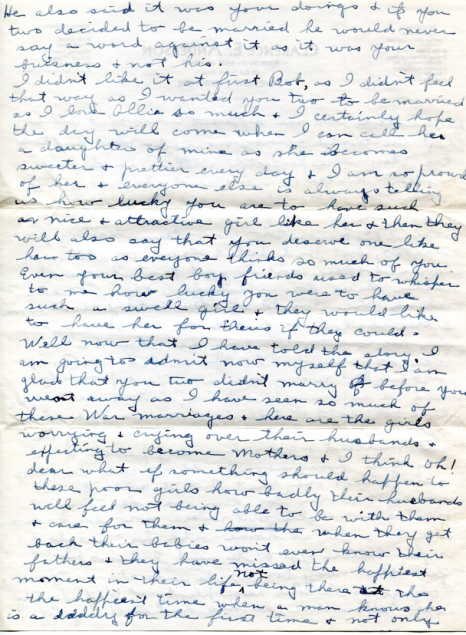 He also said it was your doings & if you
two decided to be married he would never
say a word against it, as it was your
business & not his.
I didn't like it at first Bob, as I didn't feel
that way as I wanted you two to be married
as I love Allie so much & I certainly hope
the day will come when I can call her
a daughter of mine as she is becomes
sweeter & prettier every day & I am so proud
of her & everyone else is always telling
us how lucky you are to have such
as nice & attractive girl like her & then they
will also say that you deserve one like
her too as everyone thinks so much of you.
Even your best boy friends used to whisper
to me how lucky you were to have
such a swell girl & they would like
to have her for theirs if they could.
Well now that I have told the story. I
am going to admit now myself that I am
glad that you two didn't marry before you
went away as I have seen so much of
these War marriages & here are the girls
worrying & crying over their husbands &
expecting to become Mothers & I think oh!
dear what if something should happen to
these poor girls how badly their husbands
will feel not being able to be with them
& care for them & how the when they get
back their babies won't even know their
fathers & they have missed the happiest
moment in their life not being there at the
the happiest time when a man knows he
is a daddy for the first time & not only